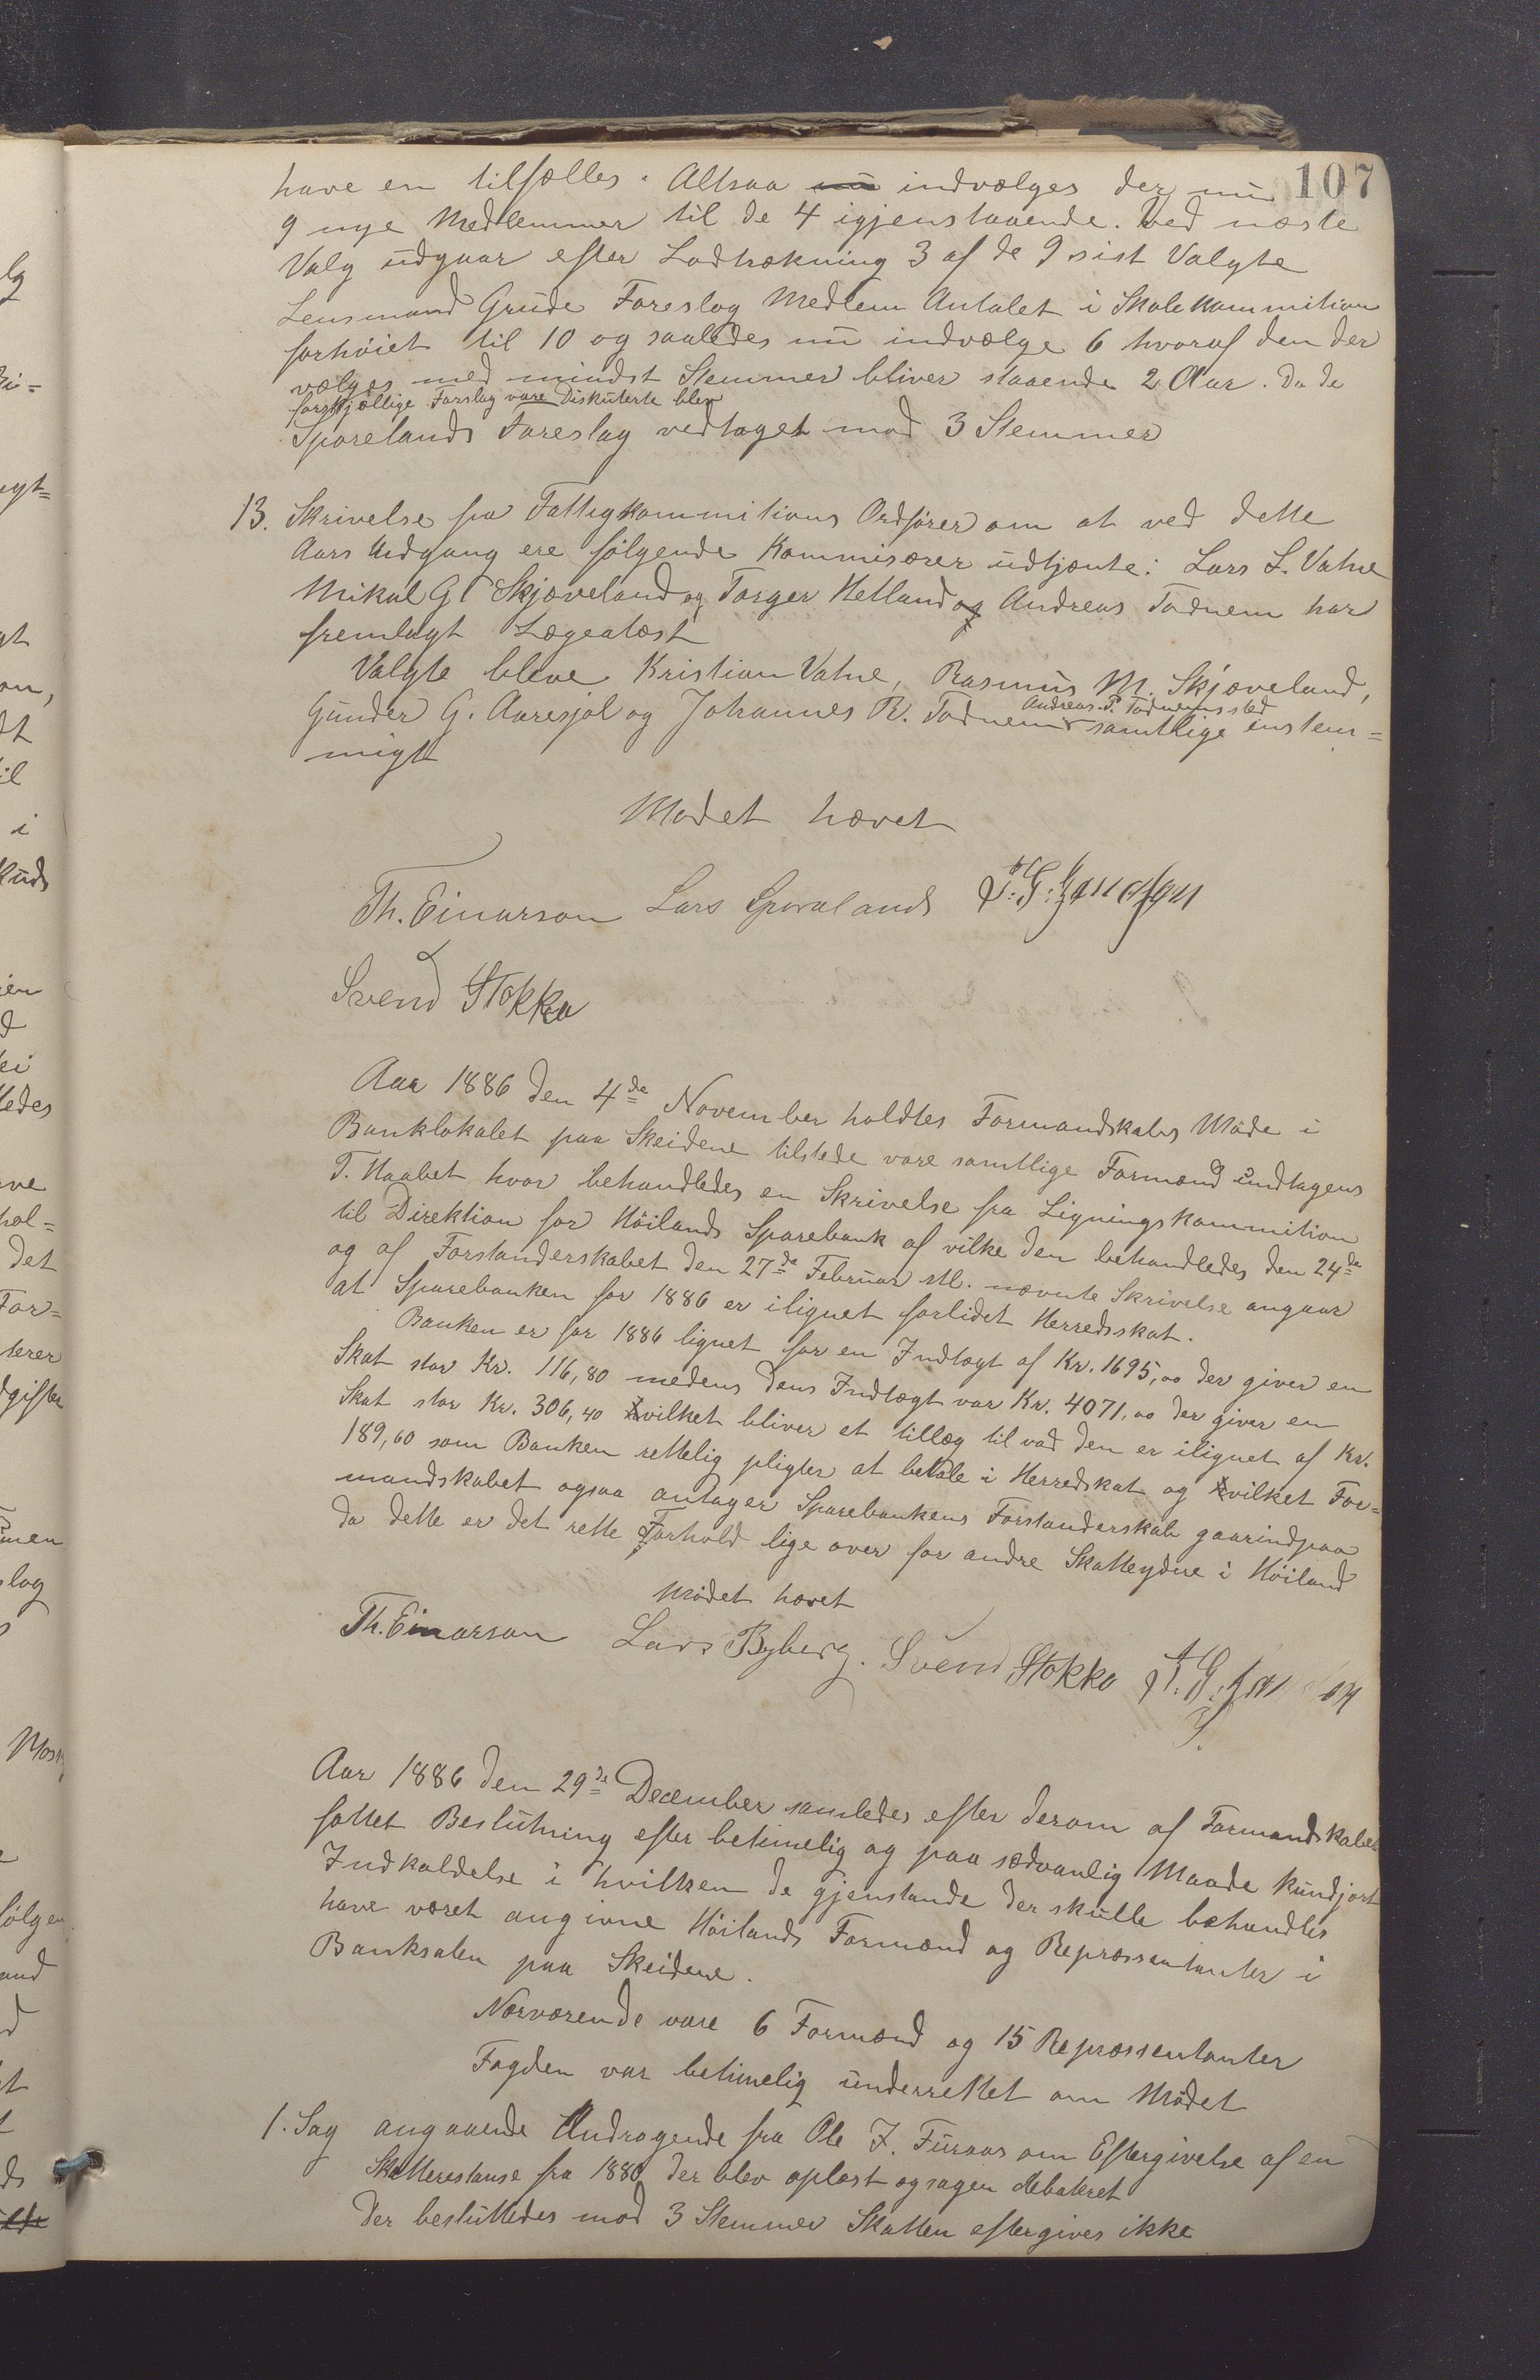 107
have en tilfælles. Altsaa nu indvælges der nu
9 nye Medlemmer til de 4 igjenstaaende. Ved næste
Valg udgaar efter Lodtrækning 3 af de 9 sist Valgte
Lensmand Grude Foreslog Medlem Antalet i Skolekommition
forhöiet til 10 og saaledes nu indvælge 6 hvoraf den der
vælges med mindst Stemmer bliver staaende 2 Aar. Da de
forskjællige Forslag vare Diskuterte blev
Sporelands Foreslag vedtaget mod 3 Stemmer
13. Skrivelse fra Fattigkommitions Ordförer om at ved dette
Aars Udgang ere fölgende Kommisærer udtjente: Lars L. Vatne
Mikal G Skjæveland og Torger Hetland og Andreas Todnem har
fremlagt Lægeatæst
Valgte bleve Kristian Vatne, Rasmus M. Skjæveland,
Gunder G. Aaresjol og Johannes R. Todnem samtlige enstem=
Andreas P. Todnems sted
migt
Mödet hævet
Th. Einarson Lars Sporaland T: G:
Svend Stokka
Aar 1886 den 4de November holdtes Formandskabs Möde i
Banklokalet paa Skeidene tilstede vare samtlige Formænd undtagens
T. Haabet hvor behandledes en Skrivelse fra Ligningskommition
til Direktion for Höilands Sparebank af vilke den behandledes den 24de
og af Forstanderskabet den 27de Februar stl. nævnte Skrivelse angaar
at Sparebanken for 1886 er ilignet forlidet Herredsskat.
Banken er for 1886 lignet for en Indtægt af Kr. 1695,00 der giver en
Skat stor Kr. 116,80 medens dens Indtægt var Kr. 4071,00 der giver en
Skat stor Kr. 306,40 hvilket bliver et tillæg til vad den er ilignet af Kr.
189,60 som Banken rettelig pligter at betale i Herredskat og hvilket For=
mandskabet ogsaa antager Sparebankens Forstanderskab gaarindpaa
da dette er det rette Forhold lige over for andre Skatteydere i Höiland
Mödet hævet
Th. Einarson Lars Byberg. Svend Stokka T: G:
Aar 1886 den 29de December samledes efter derom af Formandskabet
fattet Beslutning efter betimelig og paa sædvanlig Maade kundjort
Indkaldelse i hvilken de gjenstande der skulle behandles
have været angivne Höilands Formænd og Repræssentanter i
Banksalen paa Skeidene.
Nærværende vare 6 Formænd og 15 Repræssentanter
Fogden var betimelig underrettet om Mödet
1. Sag angaaende Andragende fra Ole J. Furaas om Eftergivelse af en
Skatterestanse fra 1880 der blev oplæst og sagen debateret
Der besluttedes mod 3 Stemmer Skatten eftergives ikke